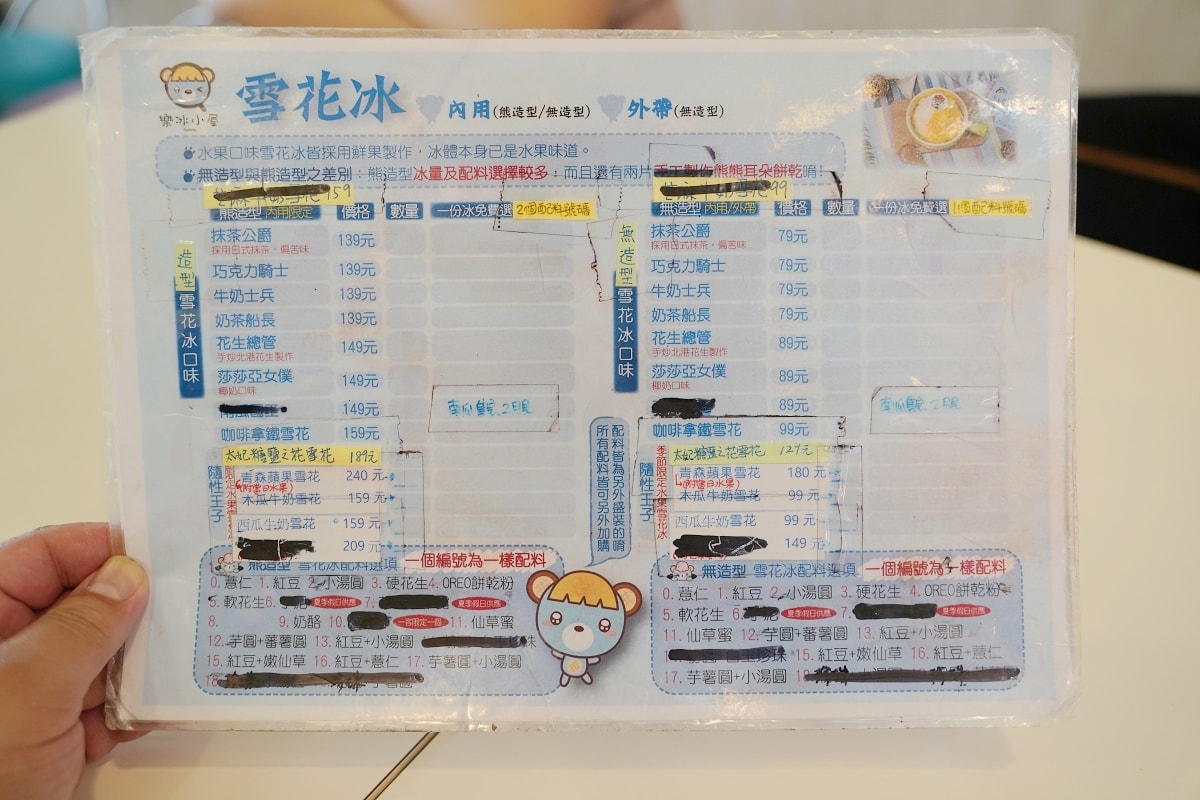 樂冰小屋
雪花冰 內用(熊造型/無造型) 外帶(無造型)
水果口味雪花冰皆採用鮮果製作，冰體本身已是水果味道。
無造型與熊造型之差別：熊造型冰量及配料選擇較多，而且還有兩片手工製作熊熊耳朵餅乾唷！
159
熊造型 內用限定 價格 數量 一份冰免費選 2個配料號碼
造型
雪花冰口味
抹茶公爵 139元
採用日式抹茶，偏苦味
巧克力騎士 139元
牛奶士兵 139元
奶茶船長 139元
花生總管 149元
手炒北港花生製作
莎莎亞女僕 149元
椰奶口味
149元
咖啡拿鐵雪花 159元
太妃糖鹽之花雪花 189元
隨性王子
青森蘋果雪花 240元
(附當日水果)
木瓜牛奶雪花 159元
西瓜牛奶雪花 159元
209元
99
無造型 內用/外帶 價格 數量 一份冰免費選 1個配料號碼
無造型
雪花冰口味
抹茶公爵 79元
採用日式抹茶，偏苦味
巧克力騎士 79元
牛奶士兵 79元
奶茶船長 79元
花生總管 89元
手炒北港花生製作
莎莎亞女僕 89元
椰奶口味
89元
咖啡拿鐵雪花 99元
太妃糖鹽之花雪花 129元
隨性王子
季節限定水果雪花冰
青森蘋果雪花 180元
(附當日水果)
木瓜牛奶雪花 99元
西瓜牛奶雪花 99元
149元
配料皆為另外盛裝的唷
所有配料皆可另外加購
無造型 雪花冰配料選項 一個編號為一樣配料
0. 薏仁 1. 紅豆 2. 小湯圓 3. 硬花生 4. OREO餅乾粉
5. 軟花生 6. 夏季假日供應 7. 夏季假日供應
8. 9. 奶酪 10. 一客限定一個 11. 仙草蜜
12. 芋圓+蕃薯圓 13. 紅豆+小湯圓
15. 紅豆+嫩仙草 16. 紅豆+薏仁 17. 芋薯圓+小湯圓
18.
無造型 雪花冰配料選項 一個編號為一樣配料
0. 薏仁 1. 紅豆 2. 小湯圓 3. 硬花生 4. OREO餅乾粉
5. 軟花生 6. 夏季假日供應 7. 夏季假日供應
11. 仙草蜜 12. 芋圓+蕃薯圓 13. 紅豆+小湯圓
15. 紅豆+嫩仙草 16. 紅豆+薏仁
17. 芋薯圓+小湯圓 18